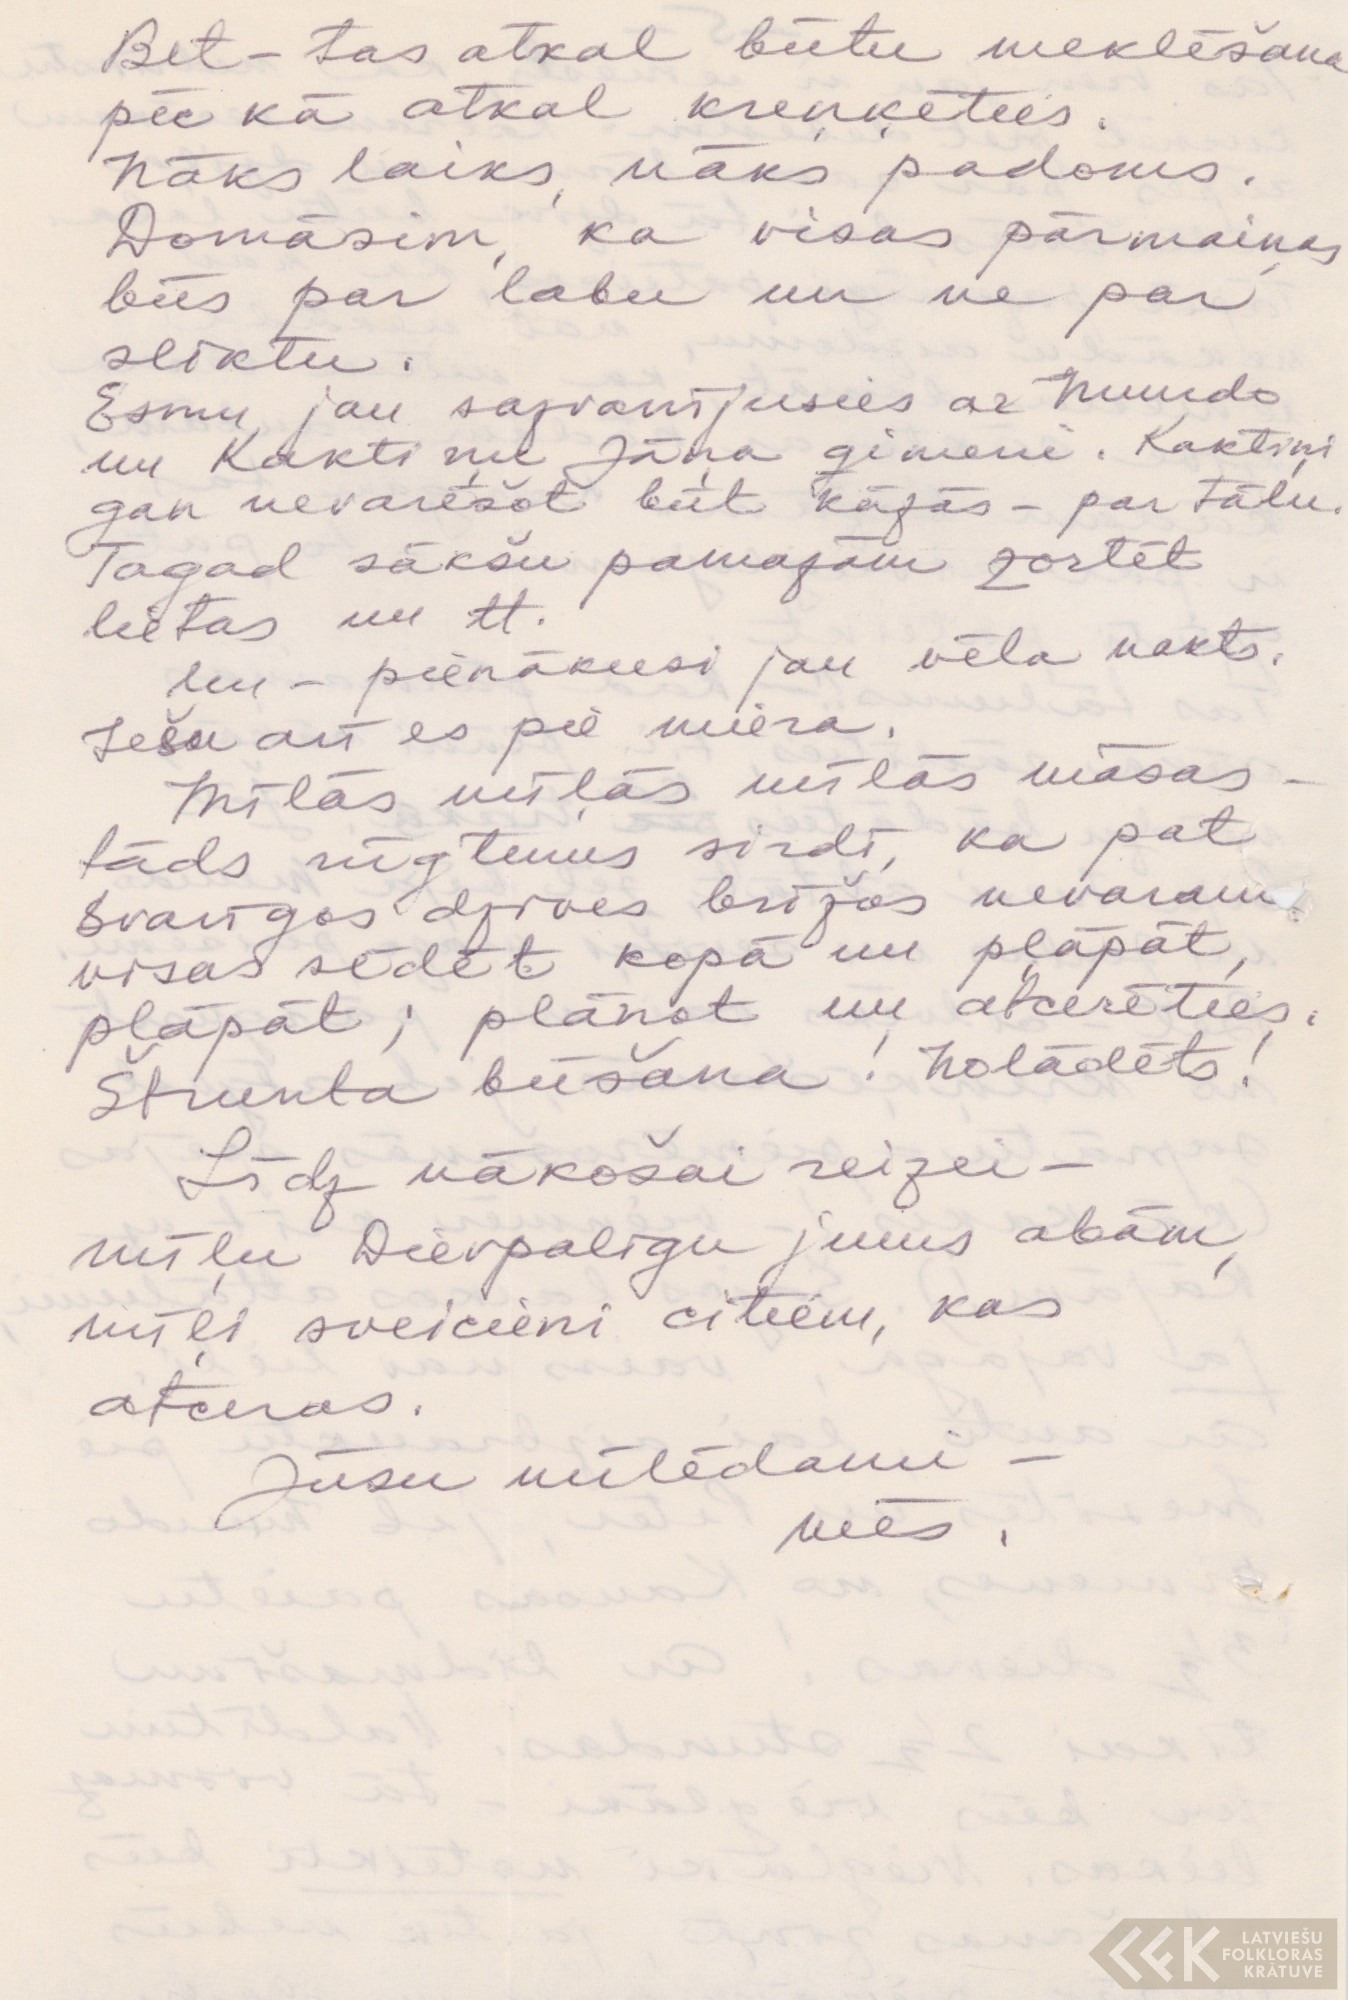 Bet – tas atkal būtu meklēšana
pēc kā atkal kreņķēties.
Nāks laiks, nāks padoms.
Domāsim, ka visas pārmaiņas
būs par labu un ne par
sliktu.
Esmu jau sazvanījusies ar Mundo
un Kaktiņu Jāņa ģimeni. Kaktiņi
gan nevarēšot būt kāzās – par tālu.
Tagad sākšu pamazām zortēt
lietas un tt.
Nu – pienākusi jau vēla nakts.
Iešu arī es pie miera.
Mīļās mīļās mīļās māsas –
tāds rūgtums sirdī, ka pat
svarīgos dzīves brīžos nevaram
visas sēdēt kopā un pļāpāt,
pļāpāt; plānot un atcerēties.
Štrunta būšana! Nolādēts!
Līdz nākošai reizei –
mīļu Dievpalīgu jums abām,
mīļi sveicieni citiem, kas
atceras.
Jūsu mīlēdami –
mēs.
LATVIEŠU
FOLKLORAS
KRĀTUVE